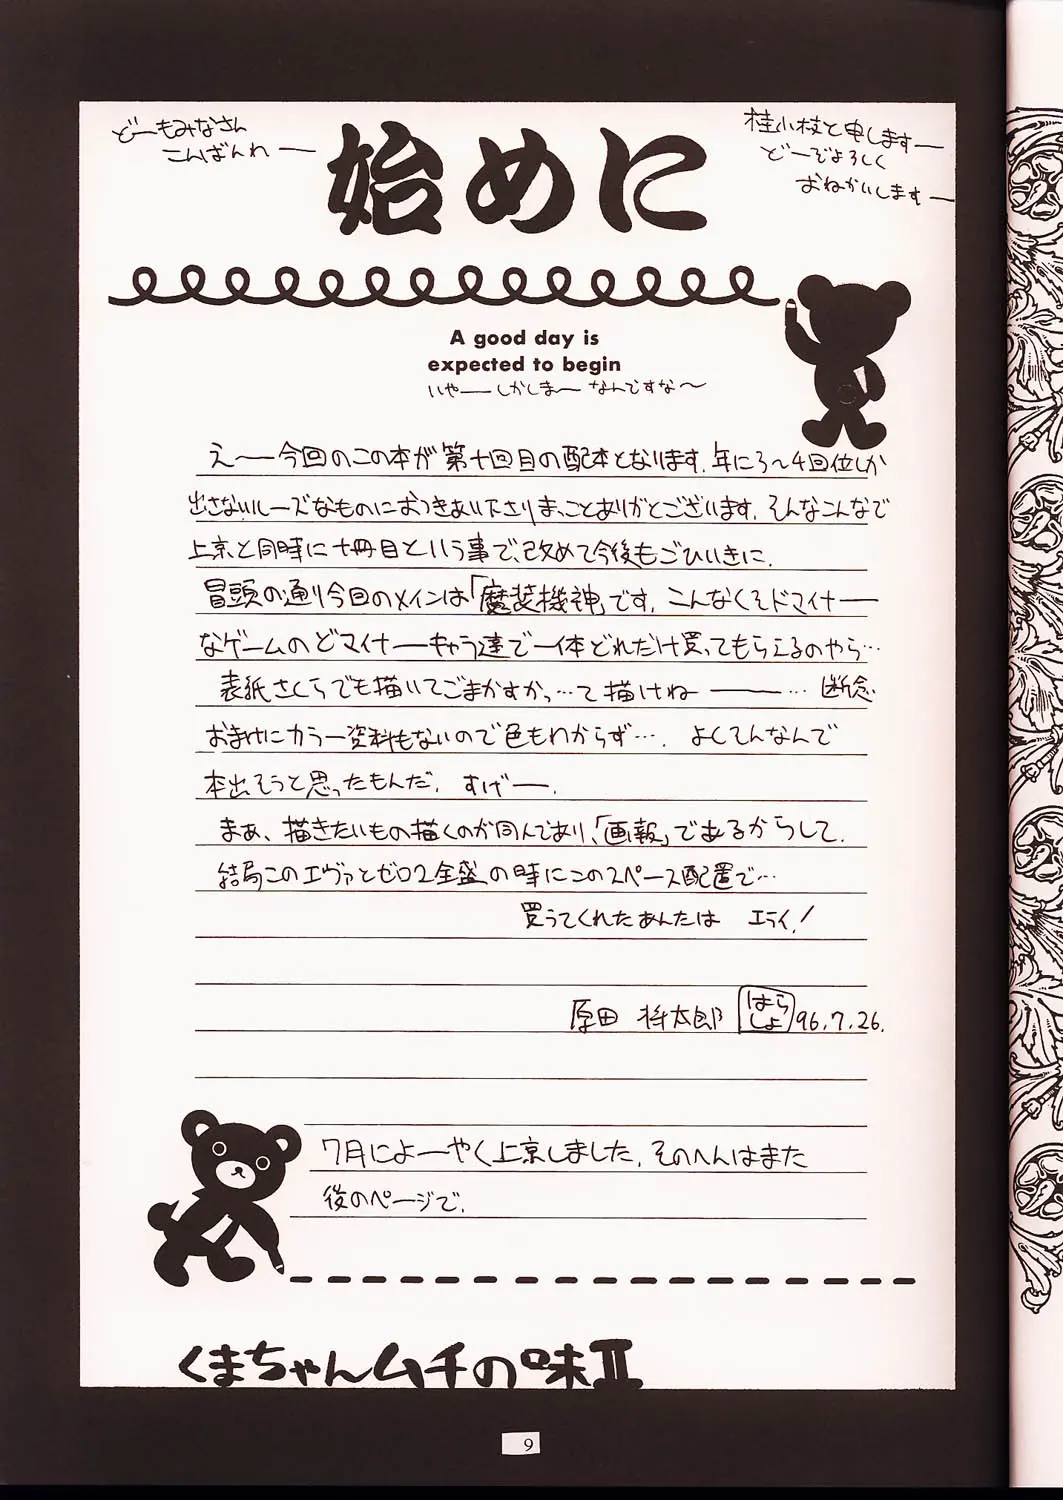 どーもみなさん
こんばんわー
始めに
桂小枝と申しますー
どーぞよろしく
おねがいしますー
A good day is
expected to begin
いやーしかしまー なんですな〜
え〜今回のこの本が第十回目の配本となります。年に3〜4回位しか
出さないルーズなものにおつきあい下さりまっことありがとございます。そんなこんなで
上京と同時に十冊目という事で、改めて今後もごひいきに。
冒頭の通り今回のメインは「魔装機神」です。こんなくそドマイナー
なゲームのどマイナーキャラ達で一体どれだけ買ってもらえるのやら…
表紙さくらでも描いてごまかすかっ…て描けねーー… 断念
おまけにカラー資料もないので色もわからず…. よくてんなんで
本出そうと思ったもんだ。すげー.
まぁ、描きたいもの描くのが同人であり、「画報」であるからして.
結局このエヴァとゼロ2全盛の時にこのスペース配置で…
買うてくれたあんたは エライ!
原田 将太郎 はらしょ 96.7.26.
7月によーやく上京しました。そのへんはまた
後のページで.
くまちゃんムチの味II
9